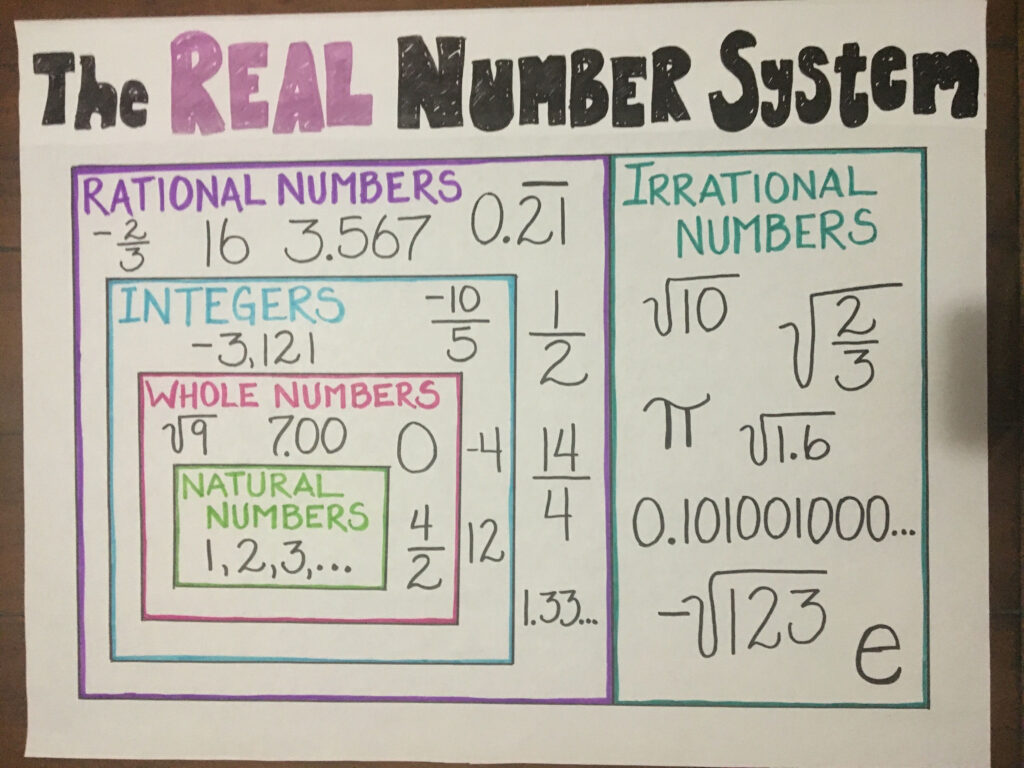 The REAL NUMBER SYSTEM
RATIONAL NUMBERS
-2/3 16 3.567 0.2̅1̅
INTEGERS
-10/5
-3,121
1/2
WHOLE NUMBERS
√9 7.00 0
-4
14/4
NATURAL
NUMBERS
1, 2, 3, ...
4/2
12
1.33...
IRRATIONAL
NUMBERS
√10
√2/3
π
√1.6
0.101001000...
-√123
e